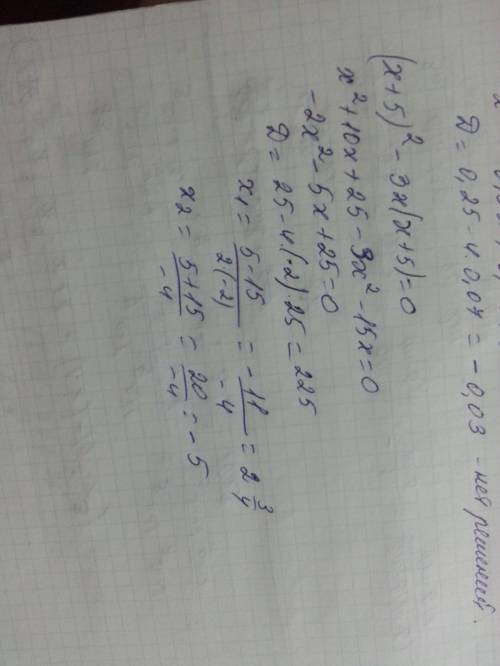 D = 0,25 - 4·0,07 = -0,03 - нет решений.
(x+5)² - 3x(x+5)=0
x²+10x+25-3x²-15x=0
-2x²-5x+25=0
D = 25-4·(-2)·25=225
x₁ = \frac{5-15}{2(-2)} = \frac{-11}{-4} = 2\frac{3}{4}
x₂ = \frac{5+15}{-4} = \frac{20}{-4} = -5